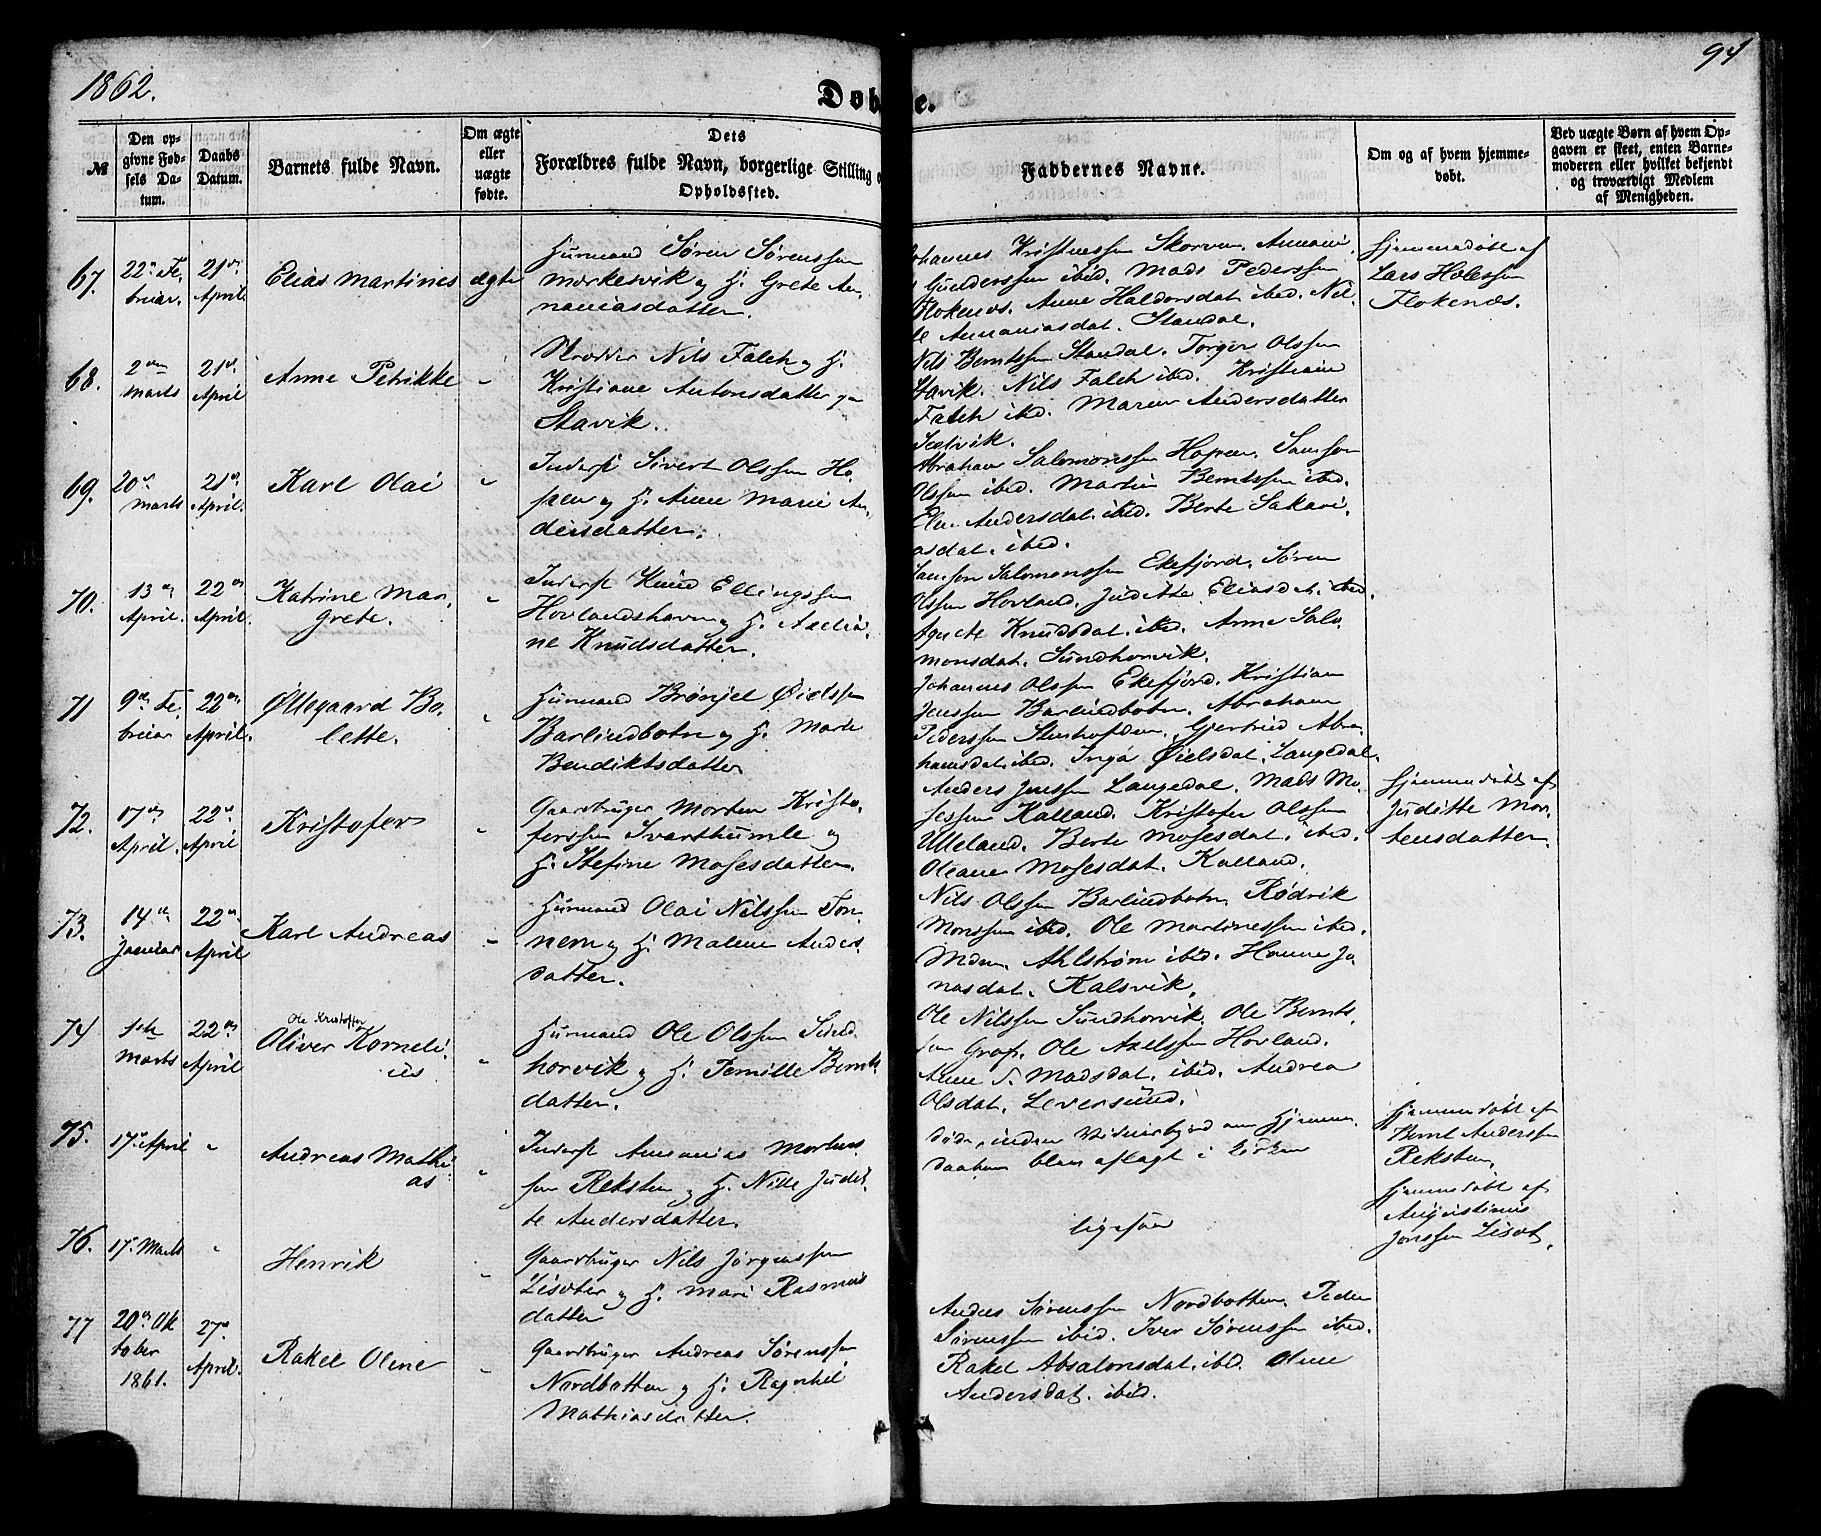 1862.
Døb
e.
94
№
Den op-
givne Fød-
sels Da-
tum.
Daabs
Datum.
Barnets fulde Navn.
Om ægte
eller
uægte
fødte.
Dets
Forældres fulde Navn, borgerlige Stilling o
Opholdssted.
Faddernes Navne.
Om og af hvem hjemme-
døbt.
Ved uægte Børn af hvem Op-
gaven er skeet, enten Barne-
moderen eller hvilket bekjendt
og troværdigt Medlem
af Menigheden.
67.
22de Fe
bruar.
21de
April
Elias Martines
ægte
Huusmand Søren Sørenssen
Morkesvik og H. Grete An-
naniasdatter.
ohannes Kristenssen Skorven. Annani
Gunderssen ibid. Mads Pederssen
Flokenæs. Anne Haldorsdat. ibid. Nil-
le Annaniasdat. Standal.
Hjemmedøbt af
Lars Holessen
Flokenæs.
68.
2den
Marts
21de
April
Anne Petrikke
"
Skrædder Nils Falch og H.
Kristiane Antonsdatter
Stavik.
Nils Berntssen Standal. Torger Olssen
Stavik. Nils Falch ibid. Kristiane
Falch ibid. Maren Andersdatter
Sælvik.
69.
20de
Marts
21de
April.
Karl Olai
"
Inderst Sivert Olssen Ho-
pen og H. Anne Marie An-
dersdatter.
Abraham Salomonssen Hopen. Samson
Olssen ibid. Martin Berntssen ibid.
Andersdat. ibid. Berte Sakari-
asdat. ibid.
70.
13de
April.
22de
April.
Katrine Mar-
grete.
"
Inderst Knud Ellingssen
Hovlandshavn og H. Axelia-
ne Knudsdatter.
Samson Salomonssen Ekefjord. Søren
Olssen Hovland. Juditte Eliasdat. ibid.
Agnete Knudsdat. ibid. Anne Salo-
monsdat. Sundhorvik.
71
9de Fe-
bruar
22de
April.
Øllegaard Bo-
lette.
"
Huusmand Brønjel Øielssen
Barlindbotn og H. Marte
Bendiktsdatter
Johannes Olssen Ekefjord. Kristian
Jenssen Barlindbotn. Abraham
Pederssen Stenhofden. Gjertrud Abra-
hamsdat. ibid. Inga Øielsdat. Langedal.
72.
17de
April.
22de
April
Kristofer
"
Gaardbruger Morten Kristo-
ferssen Svarthumle og
H. Stefine Mosesdatter.
Anders Jenssen Langedal. Mads Mo-
sessen Kalland. Kristofer Olssen
Ulleland. Berte Mosesdat. ibid.
Oleane Mosesdat. Kalland.
Hjemmedøbt af
Juditte Mor-
tensdatter.
73.
14de
Januar
22de
April
Karl Andreas
"
Huusmand Olai Nilssen Ton-
nem og H. Malene Anders-
datter.
Nils Olssen Barlindbotn. Rødrik
Monssen ibid. Ole Martinessen ibid.
Mdm. Ahlstrøm ibid. Hanne Jo-
nasdat. Kalsvik.
74
1ste
Marts
22de
April
Ole Kristoffer
Oliver Korneli-
us
"
Huusmand Ole Olssen Sund-
horvik og H. Pernille Bernts-
datter.
Ole Nilssen Sundhorvik. Ole Bernts-
sen Grov. Ole Axelssen Hovland.
Anne S. Madsdat. ibid. Andrea
Olsdat. Leversund.
75.
17de April
"
Andreas Mathi-
as
"
Inderst Annanias Mortens-
sen Reksten og H. Nille Judit-
te Andersdatter.
Døde, inden Vidnesbyrd om Hjemme-
daaben blev aflagt i Kirken
Hjemmedøbt af
Bernt Anderssen
Reksten.
76.
17de Marts
"
Henrik
"
Gaardbruger Nils Jørgenssen
Lisøter og H. Mari Rasmus-
datter
ligesaa
Hjemmedøbt af
Augustinus
Jonssen Lisøt.
77
20de Ok
tober
1861.
27de
April.
Rakel Oline
"
Gaardbruger Andreas Sørenssen
Nordbotten og H. Ragnhil
Mathiasdatter.
Anders Sørenssen Nordbotten. Peder
Sørenssen ibid. Iver Sørenssen ibid.
Rakel Absalonsdat. ibid. Oline
Andersdat. ibid.